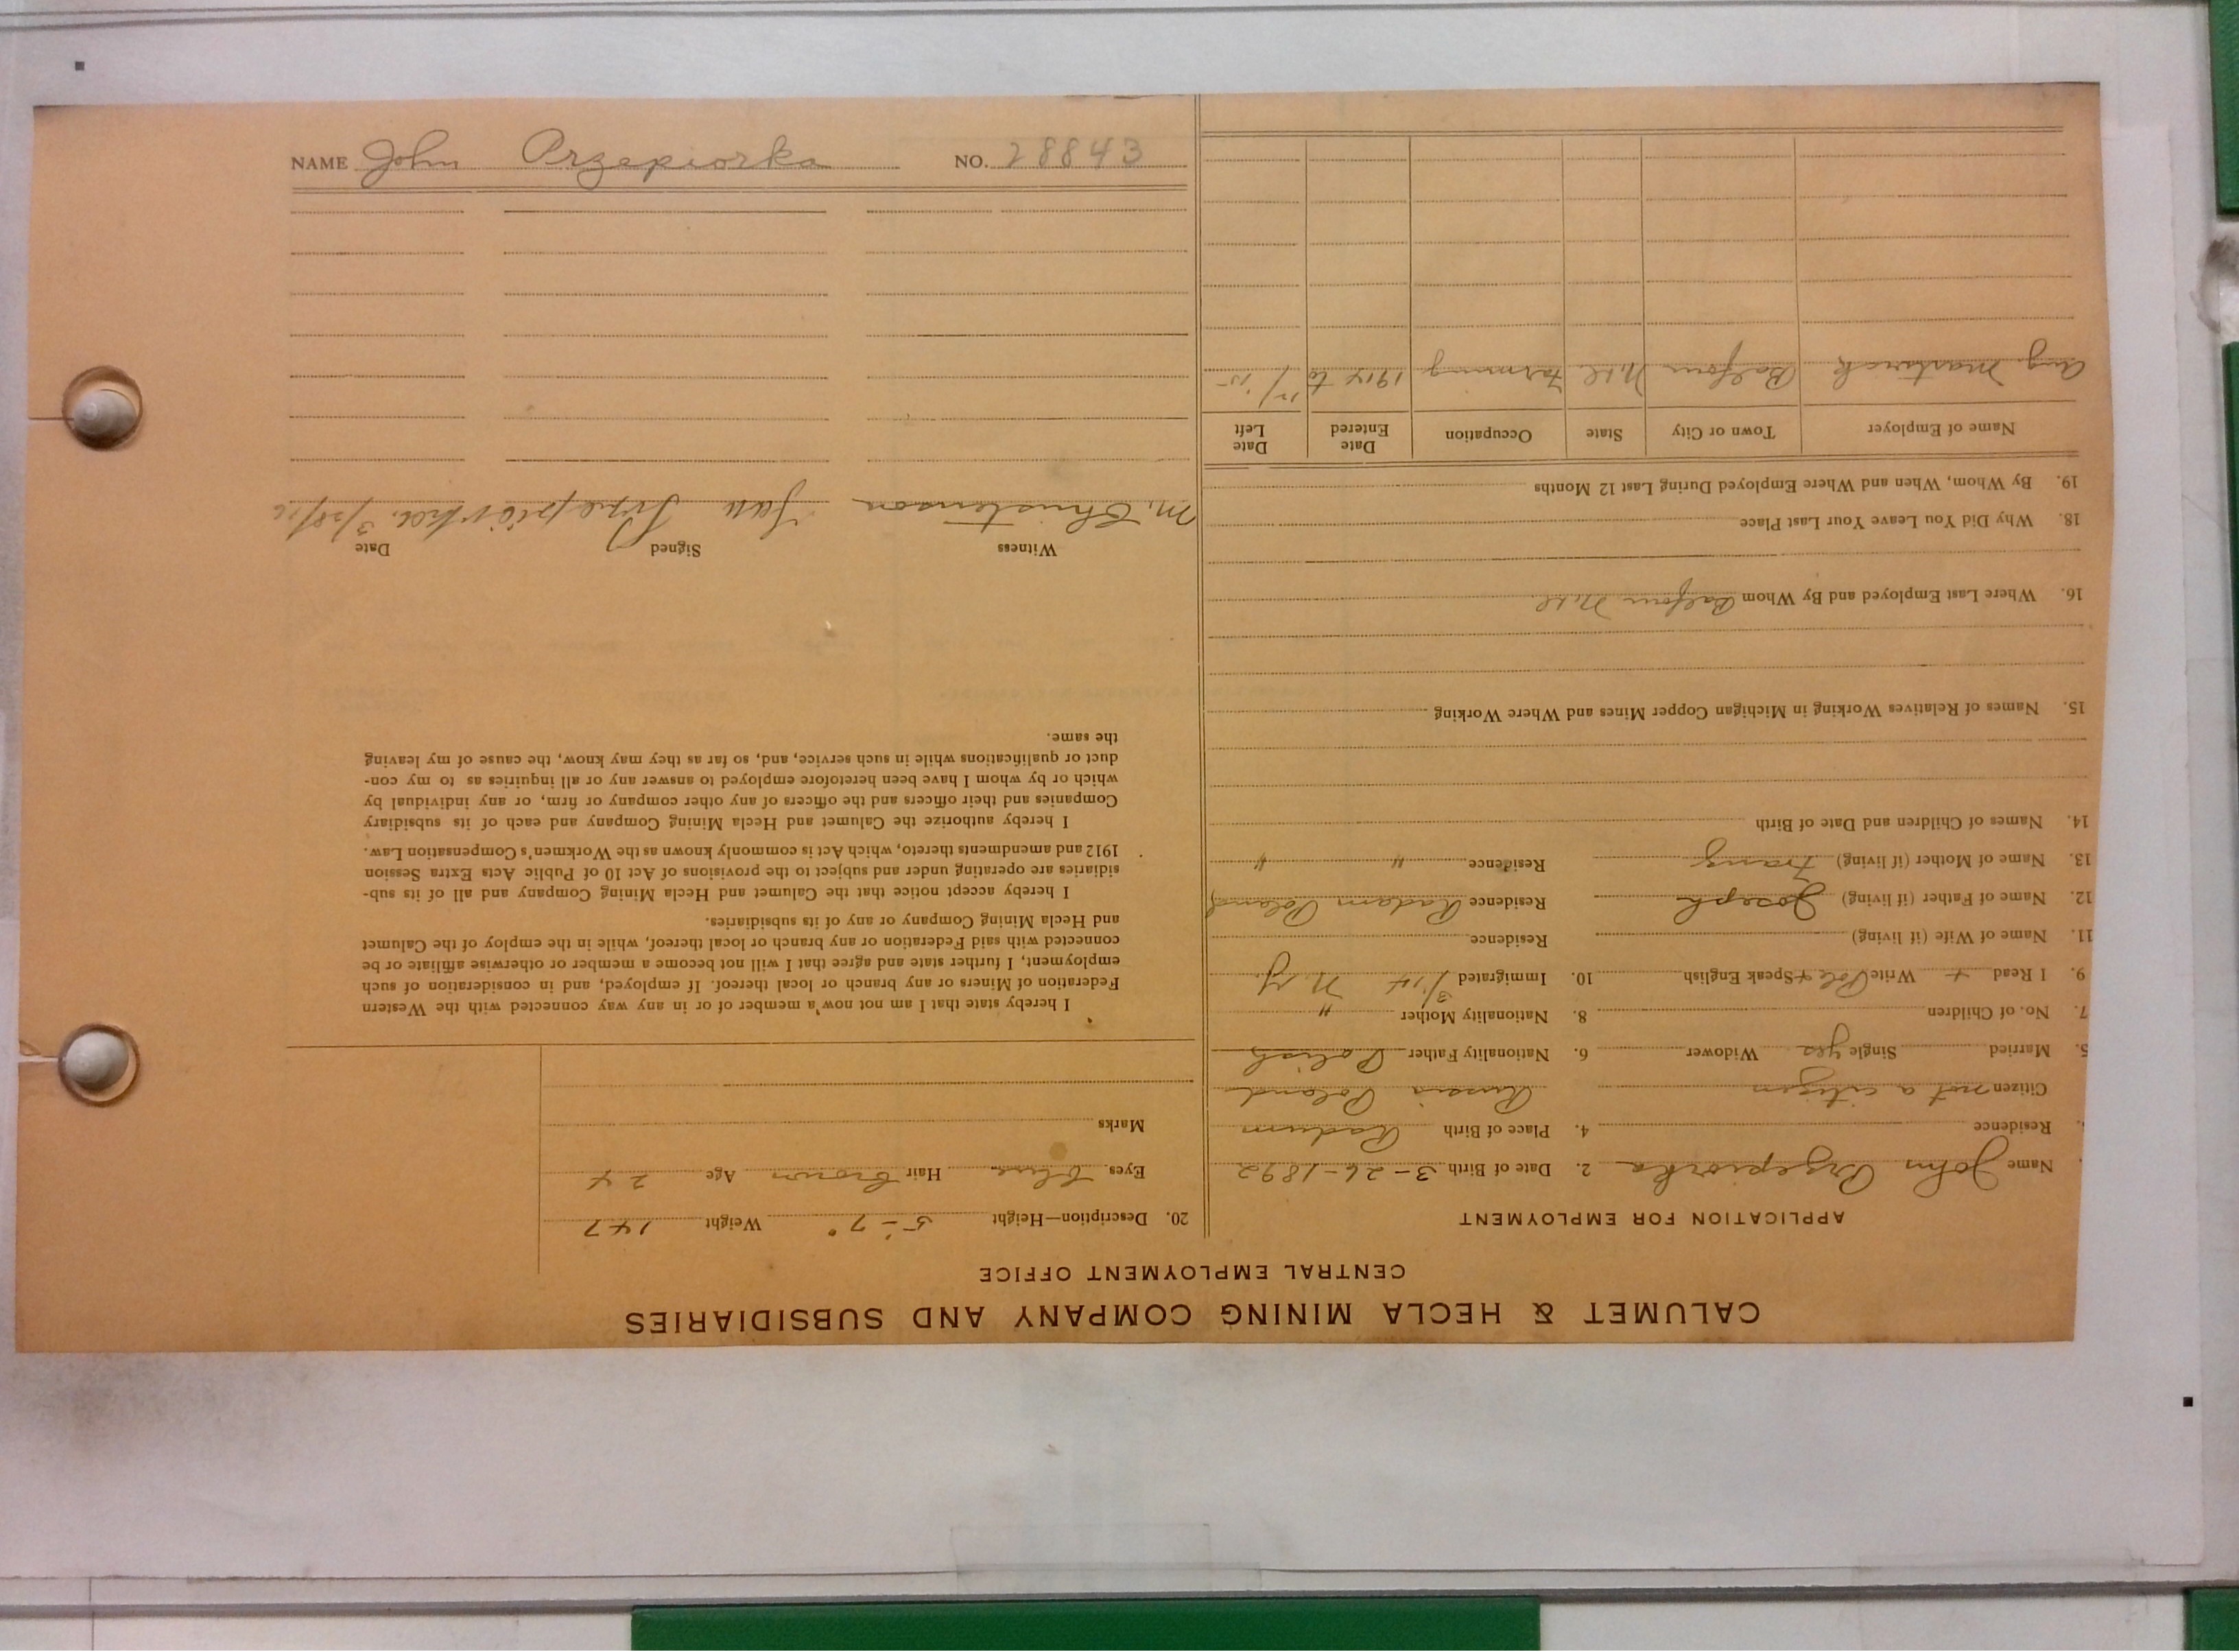 NAME John Przepiorka NO. 28843
CALUMET & HECLA MINING COMPANY AND SUBSIDIARIES
CENTRAL EMPLOYMENT OFFICE
APPLICATION FOR EMPLOYMENT
Name John Przepiorka 2. Date of Birth 3-26-1892
Residence 4. Place of Birth Radum
Citizen not a citizen Russia Poland
5. Married Single yes Widower 6. Nationality Father Polish
7. No. of Children 8. Nationality Mother "
9. I Read + Write Pole + Speak English 10. Immigrated 3/14 N.Y.
11. Name of Wife (if living) Residence
12. Name of Father (if living) Joseph Residence Radam Poland
13. Name of Mother (if living) Franz Residence " "
14. Names of Children and Date of Birth
15. Names of Relatives Working in Michigan Copper Mines and Where Working
16. Where Last Employed and By Whom Balfour N.D.
18. Why Did You Leave Your Last Place
19. By Whom, When and Where Employed During Last 12 Months
Name of Employer Town or City State Occupation Date Entered Date Left
Aug. Balfour N.D. Farming 1914 to
20. Description—Height 5'-7" Weight 147
Eyes blue Hair brown Age 24
Marks
I hereby state that I am not now a member of or in any way connected with the Western
Federation of Miners or any branch or local thereof. If employed, and in consideration of such
employment, I further state and agree that I will not become a member or otherwise affiliate or be
connected with said Federation or any branch or local thereof, while in the employ of the Calumet
and Hecla Mining Company or any of its subsidiaries.
I hereby accept notice that the Calumet and Hecla Mining Company and all of its sub-
sidiaries are operating under and subject to the provisions of Act 10 of Public Acts Extra Session
1912 and amendments thereto, which Act is commonly known as the Workmen's Compensation Law.
I hereby authorize the Calumet and Hecla Mining Company and each of its subsidiary
Companies and their officers and the officers of any other company or firm, or any individual by
which or by whom I have been heretofore employed to answer any or all inquiries as to my con-
duct or qualifications while in such service, and, so far as they may know, the cause of my leaving
the same.
Witness Signed Date
M. Christenson Jan Przepiórka 3/28/16